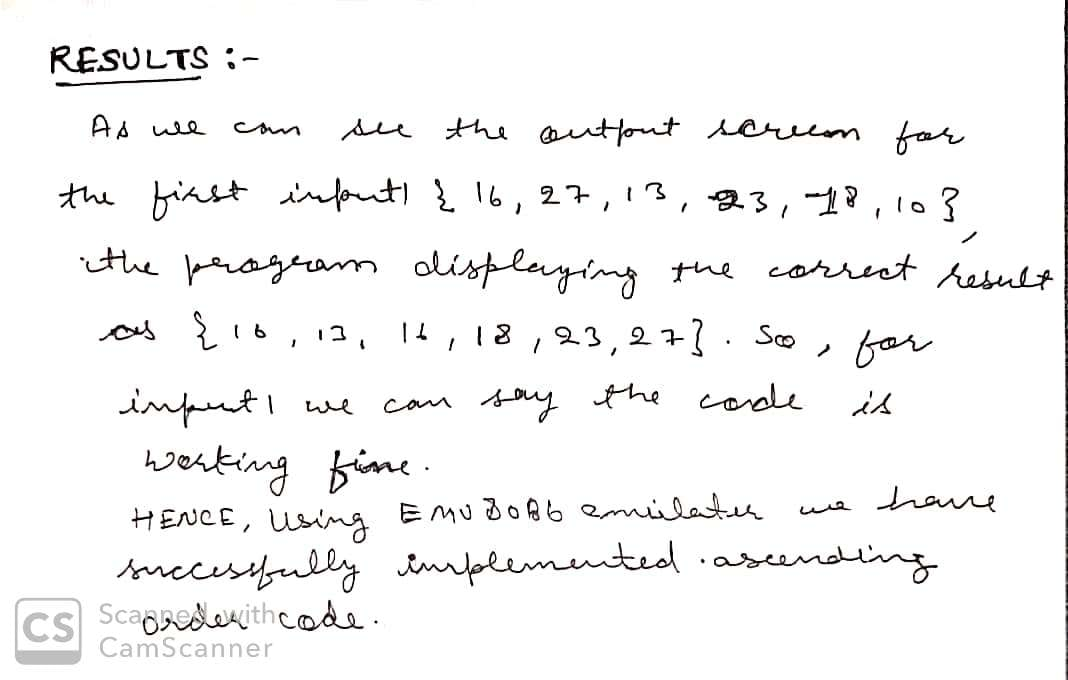 RESULTS :-
As we can see the output screen for
the first input1 { 16, 27, 13, 23, 18, 10 },
the program displaying the correct result
as { 10, 13, 16, 18, 23, 27 }. So, for
input1 we can say the code is
working fine.
HENCE, Using EMU8086 emulater we have
successfully implemented ascending
order code.
CS Scanned with
CamScanner